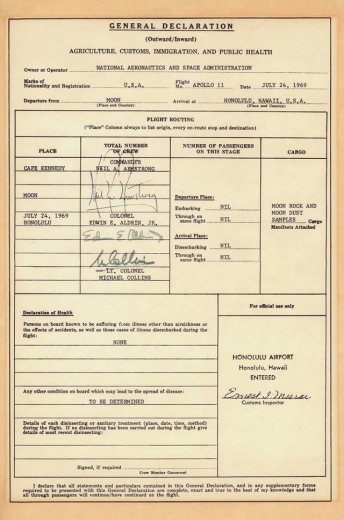 GENERAL DECLARATION
(Outward/Inward)
AGRICULTURE, CUSTOMS, IMMIGRATION, AND PUBLIC HEALTH
Owner or Operator NATIONAL AERONAUTICS AND SPACE ADMINISTRATION
Marks of
Nationality and Registration U.S.A. Flight No. APOLLO 11 Date JULY 24, 1969
Departure from MOON Arrival at HONOLULU, HAWAII, U.S.A.
(Place and Country) (Place and Country)
FLIGHT ROUTING
("Place" Column always to list origin, every en-route stop and destination)
PLACE
TOTAL NUMBER
OF CREW
NUMBER OF PASSENGERS
ON THIS STAGE
CARGO
CAPE KENNEDY
COMMANDER
NEIL A. ARMSTRONG
MOON
Neil A. Armstrong
JULY 24, 1969
HONOLULU
COLONEL
EDWIN E. ALDRIN, JR.
LT. COLONEL
MICHAEL COLLINS
Departure Place:
Embarking NIL
Through on
same flight NIL
Arrival Place:
Disembarking NIL
Through on
same flight NIL
MOON ROCK AND
MOON DUST
SAMPLES Cargo
Manifests Attached
Declaration of Health
Persons on board known to be suffering from illness other than airsickness or
the effects of accidents, as well as those cases of illness disembarked during the
flight:
NONE
Any other condition on board which may lead to the spread of disease:
TO BE DETERMINED
Details of each disinsecting or sanitary treatment (place, date, time, method)
during the flight. If no disinsecting has been carried out during the flight give
details of most recent disinsecting:
Signed, if required
Crew Member Concerned
For official use only
HONOLULU AIRPORT
Honolulu, Hawaii
ENTERED
Customs Inspector
I declare that all statements and particulars contained in this General Declaration, and in any supplementary forms
required to be presented with this General Declaration are complete, exact and true to the best of my knowledge and that
all through passengers will continue/have continued on the flight.